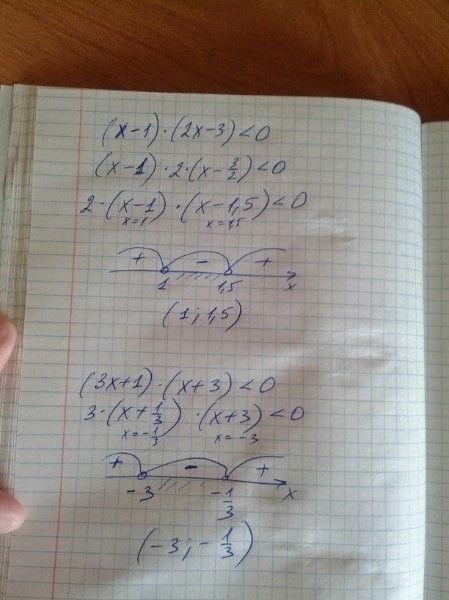 (x-1)·(2x-3)<0
(x-1)·2·(x-3/2)<0
2·(x-1)·(x-1,5)<0
x=1 x=1,5
+ - +
1 1,5 x
(1; 1,5)
(3x+1)·(x+3)<0
3·(x+1/3)·(x+3)<0
x=-1/3 x=-3
+ - +
-3 -1/3 x
(-3; -1/3)